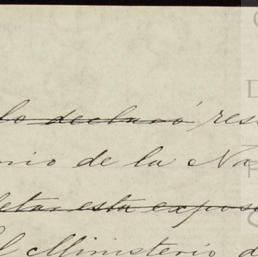 lo declaró res
rio de la Na
letar esta expos
El Ministerio d